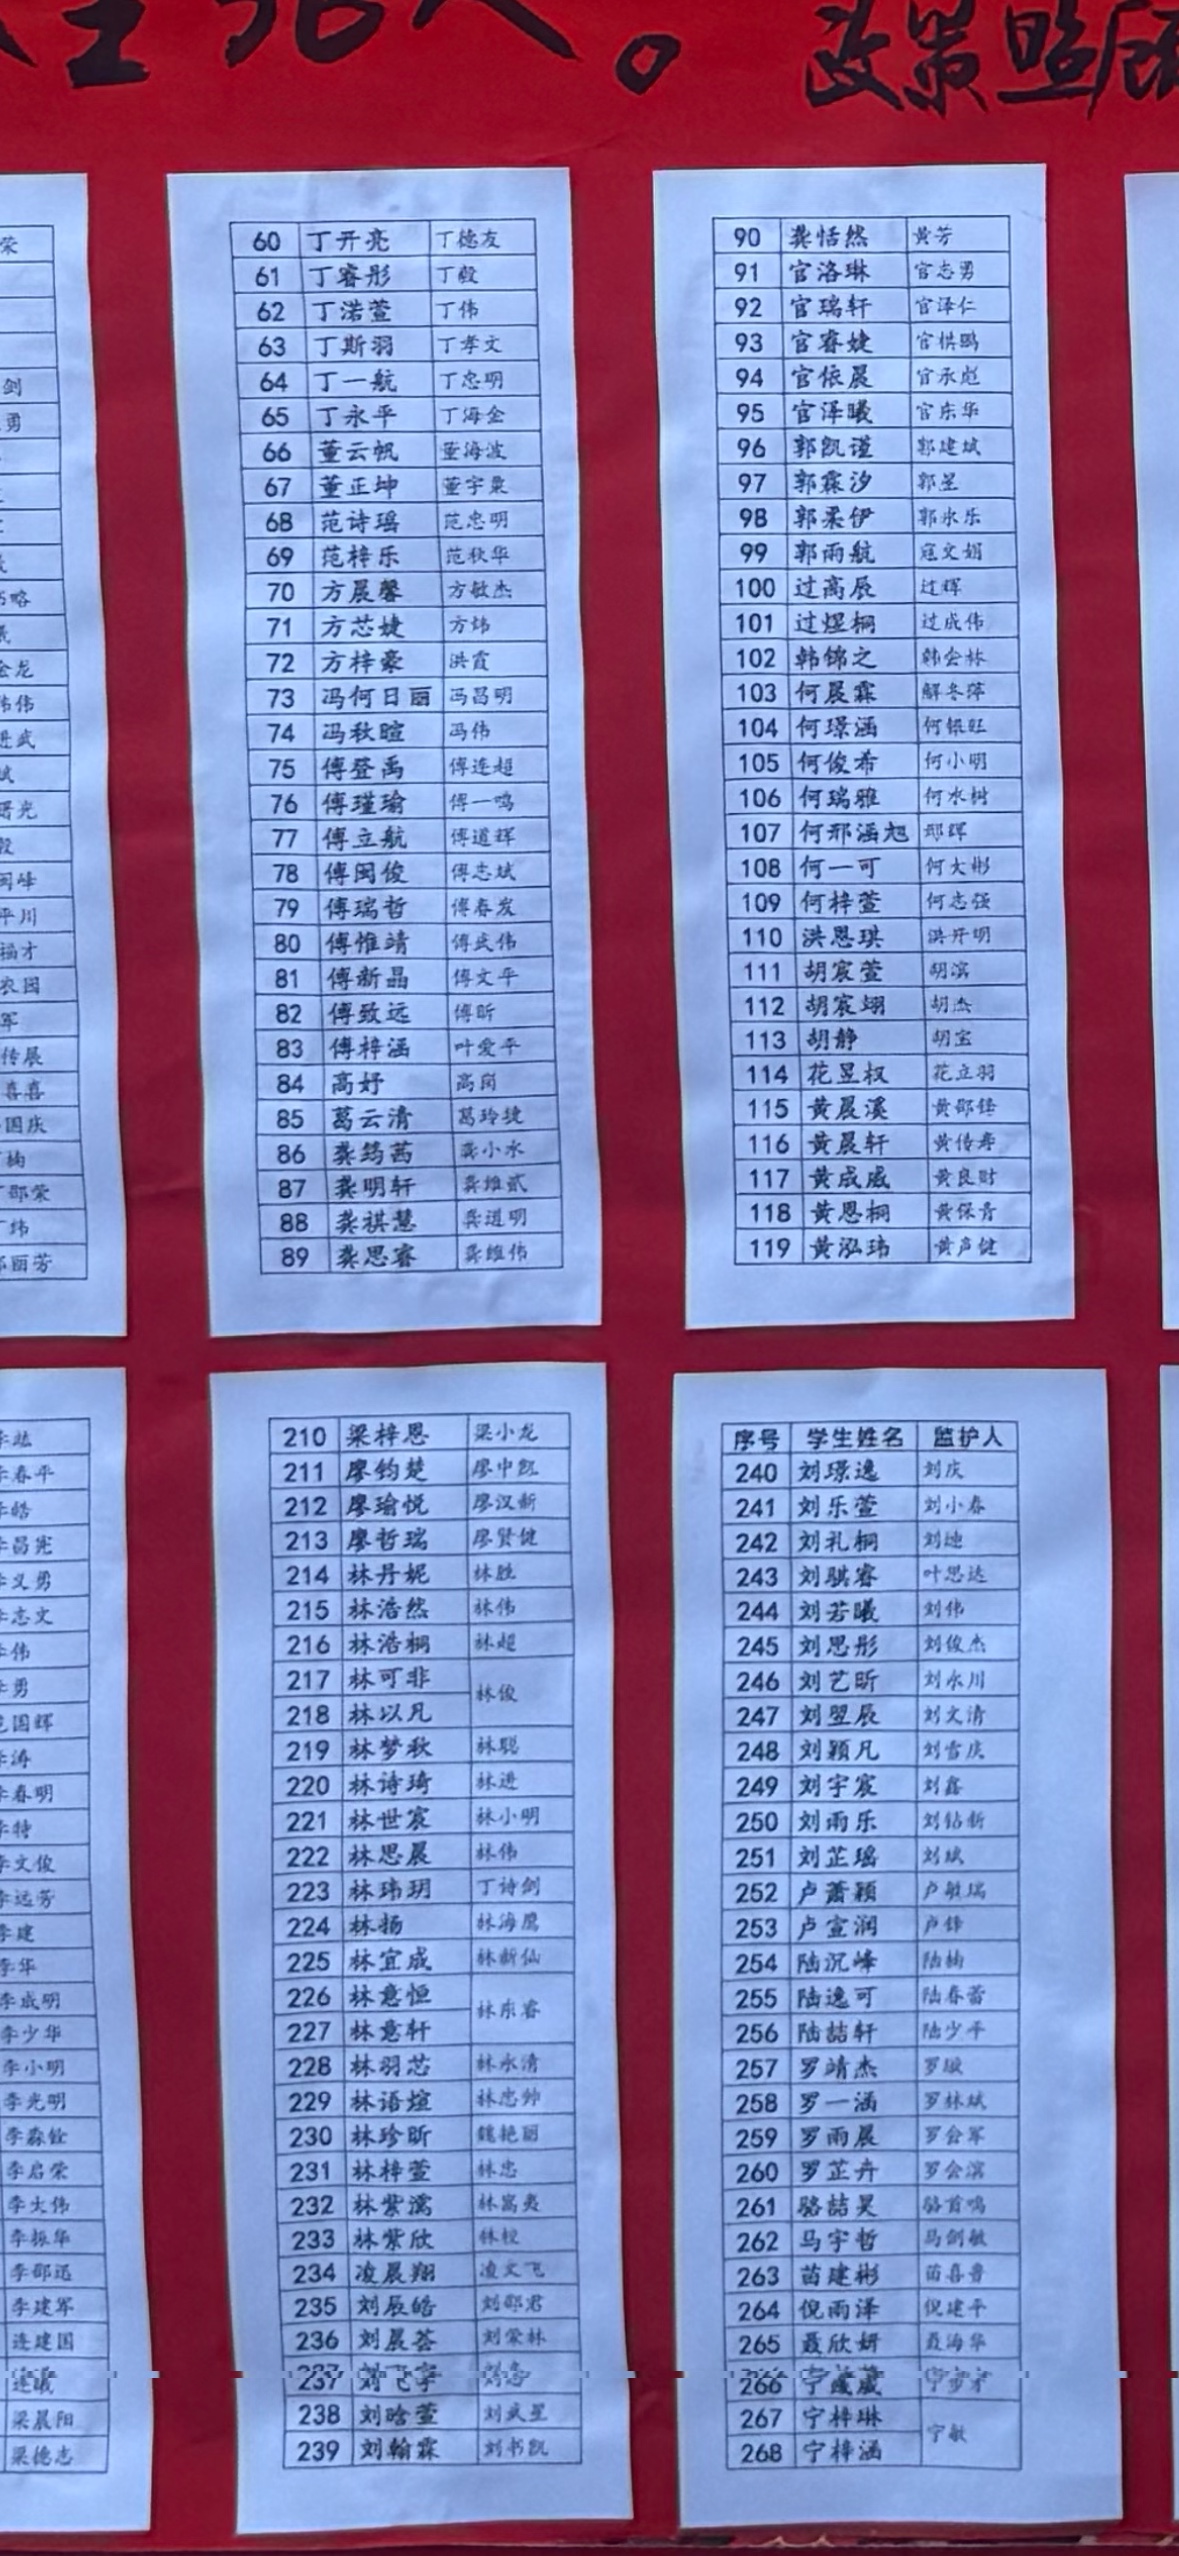 政策照顾
60 丁开亮 丁德友
61 丁睿彤 丁毅
62 丁渃萱 丁伟
63 丁斯羽 丁孝文
64 丁一航 丁忠明
65 丁永平 丁海金
66 董云帆 董海波
67 董正坤 董宇粟
68 范诗瑶 范忠明
69 范梓乐 范秋华
70 方晨馨 方敏杰
71 方芯婕 方炜
72 方梓豪 洪霞
73 冯何日丽 冯昌明
74 冯秋暄 冯伟
75 傅登禹 傅连超
76 傅瑾瑜 傅一鸣
77 傅立航 傅道辉
78 傅闽俊 傅志斌
79 傅瑞哲 傅春发
80 傅惟靖 傅武伟
81 傅新晶 傅文平
82 傅致远 傅昕
83 傅梓涵 叶爱平
84 高妤 高岗
85 葛云清 葛玲琼
86 龚筠茜 龚小水
87 龚明轩 龚维贰
88 龚祺慧 龚道明
89 龚思睿 龚维伟
90 龚恬然 黄芳
91 官洛琳 官志勇
92 官瑞轩 官泽仁
93 官睿婕 官棋鹏
94 官依晨 官承彪
95 官泽曦 官东华
96 郭凯谨 郭建斌
97 郭霖汐 郭星
98 郭柔伊 郭永乐
99 郭雨航 寇文娟
100 过高辰 过辉
101 过煜桐 过成伟
102 韩锦之 韩会林
103 何晨霖 解冬萍
104 何璟涵 何银旺
105 何俊希 何小明
106 何瑞雅 何水树
107 何邢涵旭 邢辉
108 何一可 何大彬
109 何梓萱 何志强
110 洪恩琪 洪开明
111 胡宸萱 胡滨
112 胡宸翊 胡杰
113 胡静 胡宝
114 花昱权 花立羽
115 黄晨溪 黄邵锋
116 黄晨轩 黄传寿
117 黄成威 黄良财
118 黄恩桐 黄保青
119 黄泓玮 黄声健
210 梁梓恩 梁小龙
211 廖钧楚 廖中凯
212 廖瑜悦 廖汉新
213 廖哲瑞 廖贤健
214 林丹妮 林胜
215 林浩然 林伟
216 林浩桐 林超
217 林可非 林俊
218 林以凡
219 林梦秋 林聪
220 林诗琦 林进
221 林世宸 林小明
222 林思晨 林伟
223 林玮玥 丁诗剑
224 林扬 林海鹰
225 林宜成 林新仙
226 林意恒 林东睿
227 林意轩
228 林羽芯 林永清
229 林语煊 林忠帅
230 林珍昕 魏艳丽
231 林梓萱 林忠
232 林紫濡 林富夷
233 林紫欣 林校
234 凌晨翔 凌文飞
235 刘辰皓 刘邵君
236 刘晨荟 刘荣林
237 刘飞宇
238 刘晗萱 刘武星
239 刘翰霖 刘书凯
序号 学生姓名 监护人
240 刘璟逸 刘庆
241 刘乐萱 刘小春
242 刘礼桐 刘迪
243 刘骐睿 叶思达
244 刘若曦 刘伟
245 刘思彤 刘俊杰
246 刘艺昕 刘永川
247 刘翌辰 刘文清
248 刘颖凡 刘雪庆
249 刘宇宸 刘鑫
250 刘雨乐 刘钻新
251 刘芷瑶 刘斌
252 卢萧颖 卢敏瑞
253 卢宣润 卢锋
254 陆沉峰 陆楠
255 陆逸可 陆春蕾
256 陆喆轩 陆少平
257 罗靖杰 罗璇
258 罗一涵 罗林斌
259 罗雨晨 罗会军
260 罗芷卉 罗会滨
261 骆喆昊 骆首鸣
262 马宇哲 马剑敏
263 苗建彬 苗喜鲁
264 倪雨泽 倪建平
265 聂欣妍 聂海华
266
267 宁梓琳 宁敏
268 宁梓涵
李春平
李昌宪
李义勇
李志文
李春明
李文俊
李远芳
李建
李华
李成明
李少华
李小明
李光明
李淼铨
李启荣
李大伟
李振华
李邵迅
李建军
连建国
连曦
梁晨阳
梁德志